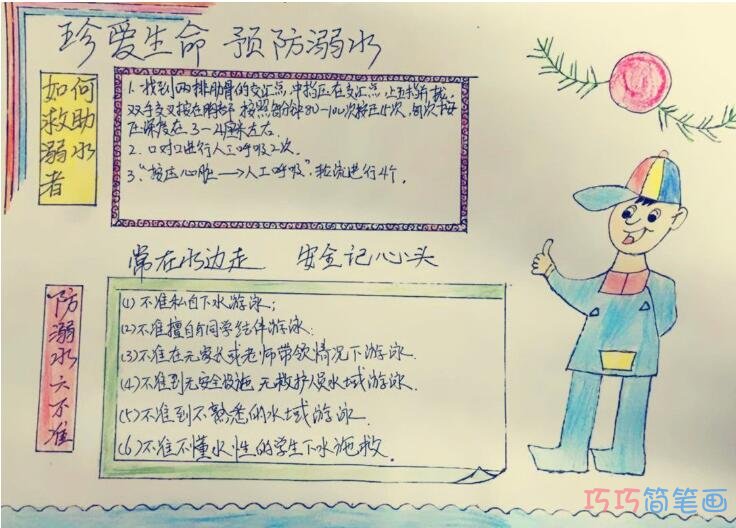 珍爱生命 预防溺水
如何
救助
溺水
者
1. 找到两排肋骨的交汇点,中指压在交汇点上
双手交叉按在 按照每分钟80-100次按压15次,每次按
压深度在3-4厘米左右.
2. 口对口进行人工呼吸2次.
3. "按压心脏→人工呼吸",轮流进行4个.
常在水边走 安全记心头
防溺水六不准
(1)不准私自下水游泳;
(2)不准擅自与同学结伴游泳.
(3)不准在无家长或老师带领情况下游泳.
(4)不准到无安全设施 无救护人员水域游泳.
(5)不准到不熟悉的水域游泳.
(6)不准不懂水性的学生下水施救.
巧巧简笔画